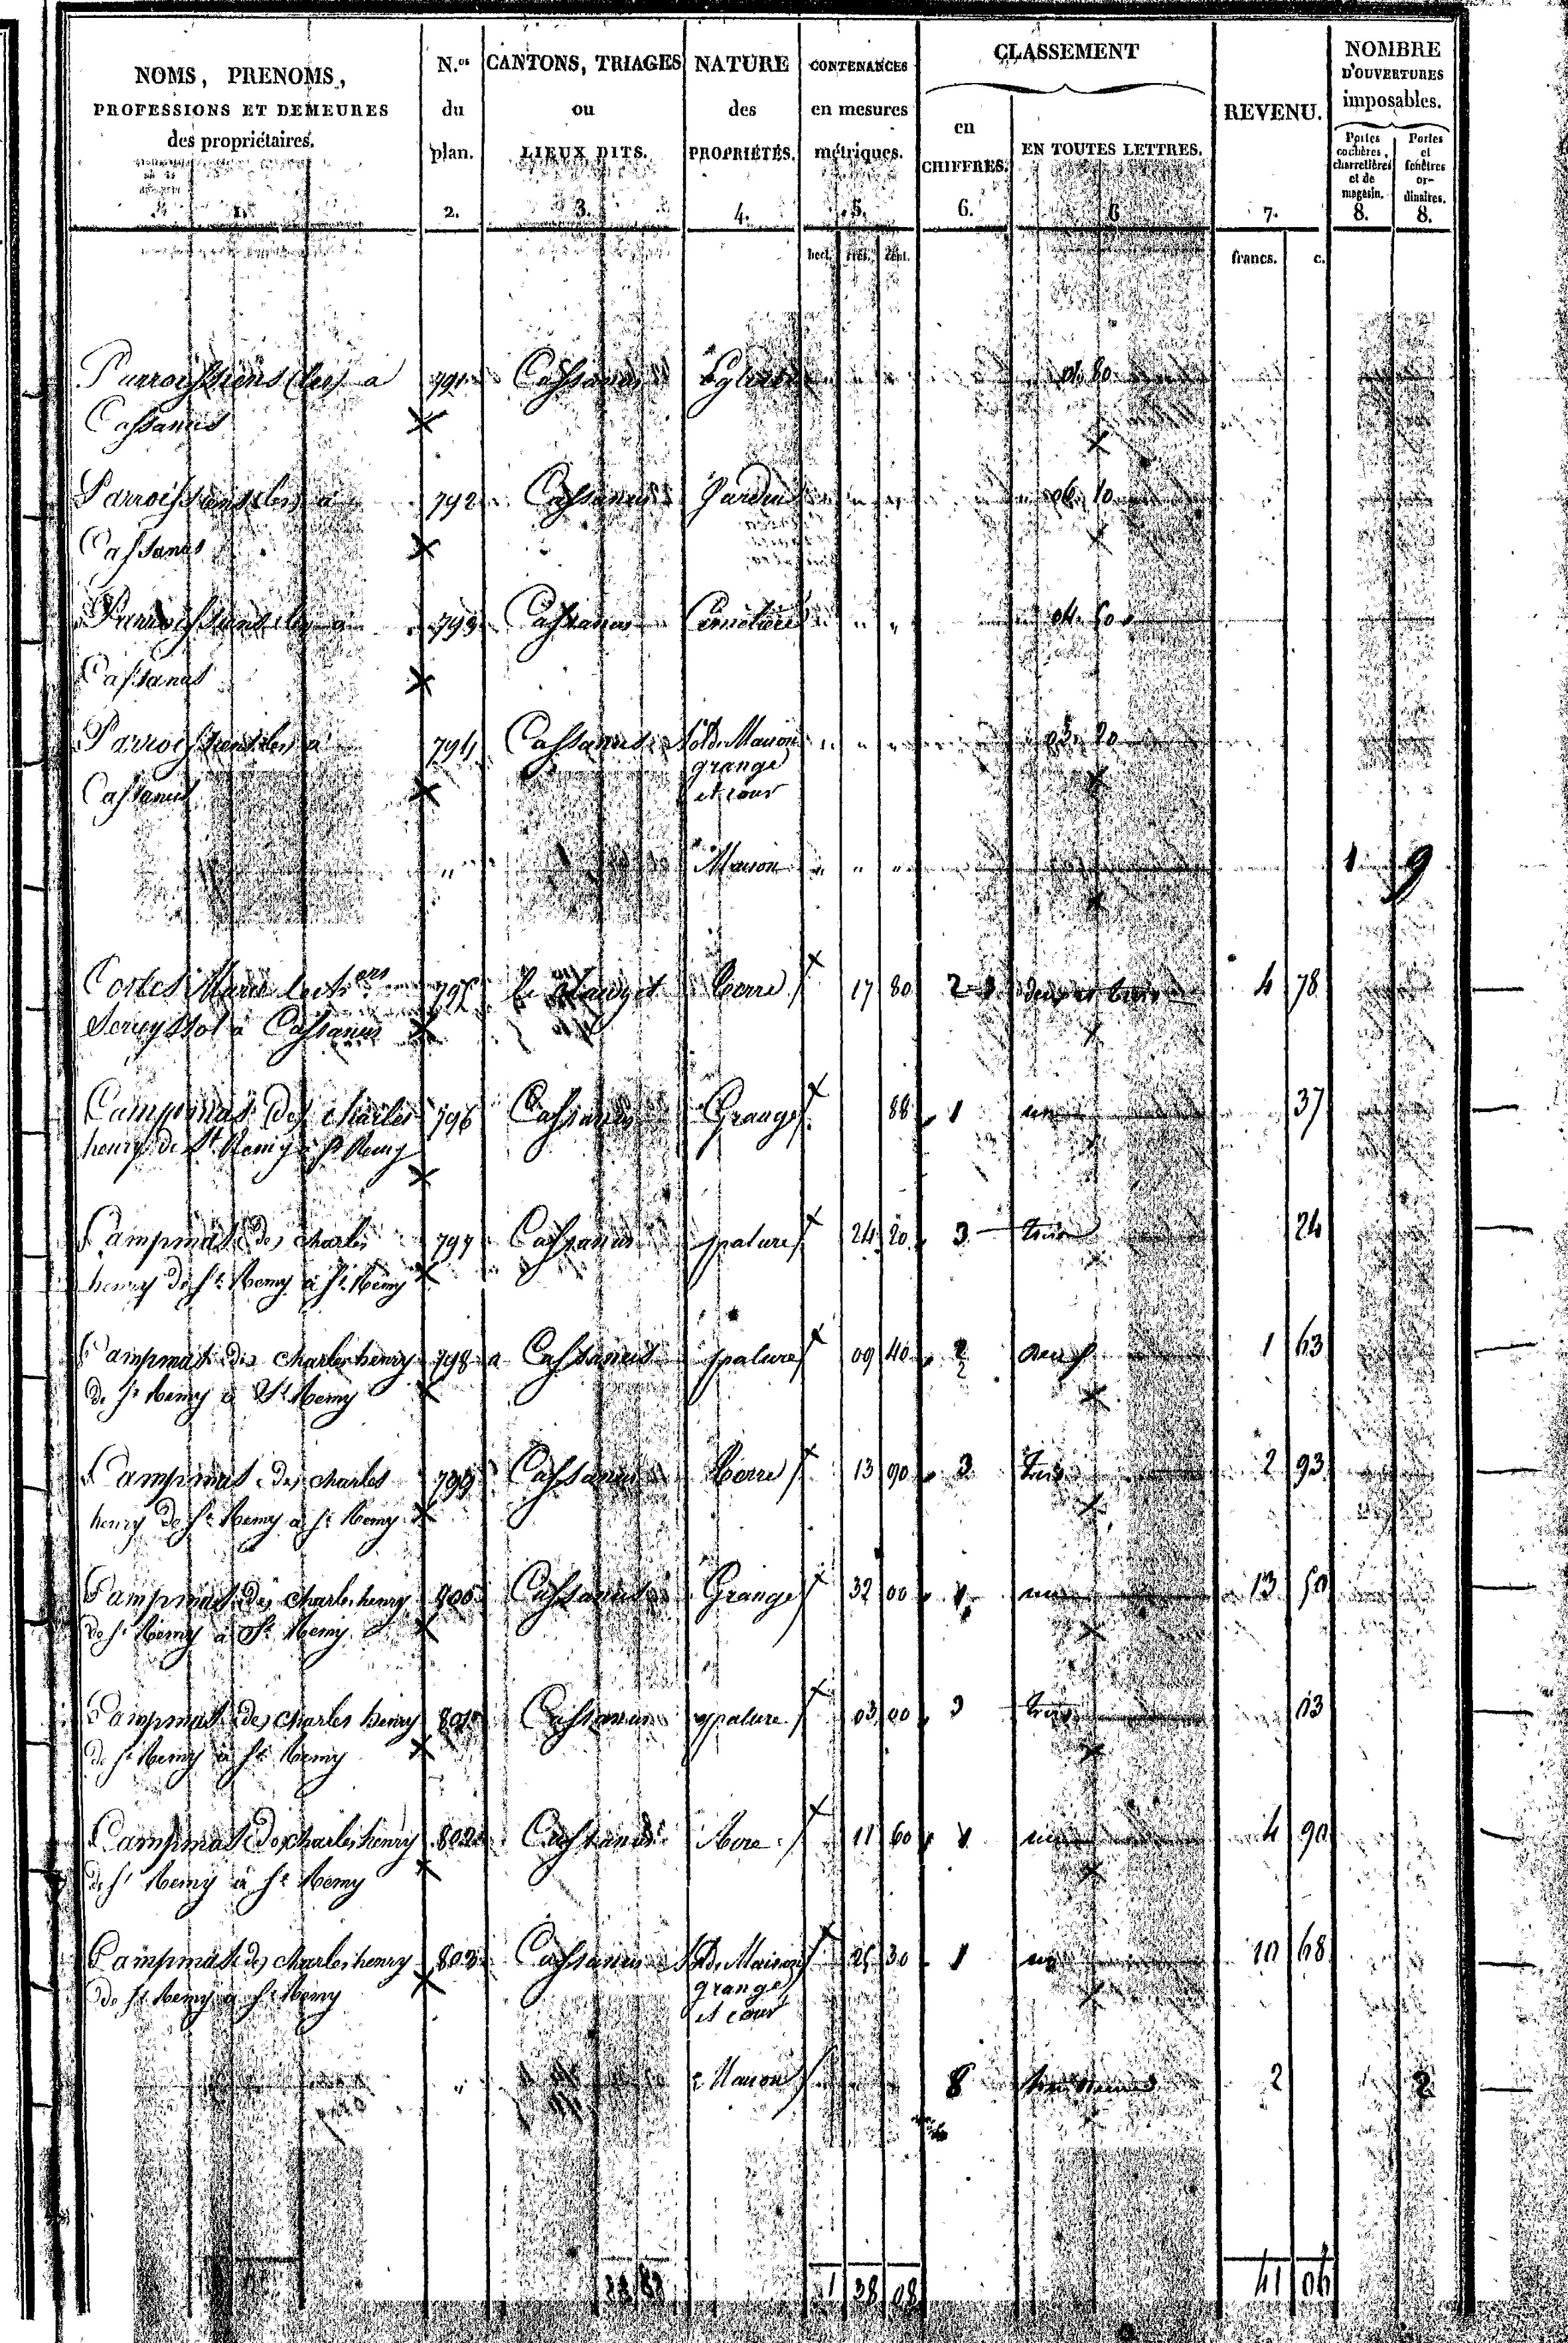 NOMS, PRENOMS,
PROFESSIONS ET DEMEURES
des propriétaires.
1.
N.os
du
plan.
2.
CANTONS, TRIAGES
ou
LIEUX DITS.
3.
NATURE
des
PROPRIÉTÉS.
4.
CONTENANCES
en mesures
métriques.
5.
CLASSEMENT
en
CHIFFRES.
6.
EN TOUTES LETTRES.
6
REVENU.
7.
NOMBRE
D'OUVERTURES
imposables.
Portes
cochères,
charretières
et de
magasin.
8.
Portes
et
fenêtres
or-
dinaires.
8.
hect. cent.
francs. c.
Parroissiens (les) a 791 Cassanus Eglise 01 80
Cassanus
Parroissiens (les) a 792 Cassanus Jardin 06 10
Cassanus
Parroissiens (les) a 793 Cassanus Cimetiere 04
Cassanus
Parroissiens (les) a 794 Cassanus Sol de Maison 03 20
grange
Cassanus et cour
" Maison " " " 1 9
Cortes Marie 795 Terre 17 80 2-3 deux et trois 4 78
à Cassanus
Campmas (de) charles 796 Cassanus Grange 88 1 un 37
henry de St Remy à St Remy
Campmas (de) charles 797 Cassanus pature 24 20 3 trois 24
henry de St Remy à St Remy
Campmas (de) charles henry 798 a Cassanus pature 09 40 2 1 63
de St Remy à St Remy
Campmas (de) charles 799 Cassanus Terre 13 90 3 trois 2 93
henry de St Remy à St Remy
Campmas (de) charles henry 800 Cassanus Grange 32 00 1 un 13 50
de St Remy à St Remy
Campmas (de) charles henry 801 Cassanus pature 03 00 3 trois 03
de St Remy à St Remy
Campmas (de) charles henry 802 Cassanus 11 60 1 un 4 90
de St Remy à St Remy
Campmas (de) charles henry 803 Cassanus Sol de Maison 25 30 1 un 10 68
de St Remy à St Remy grange
et cour
" Maison 8 2 2
1 38 08 41 06